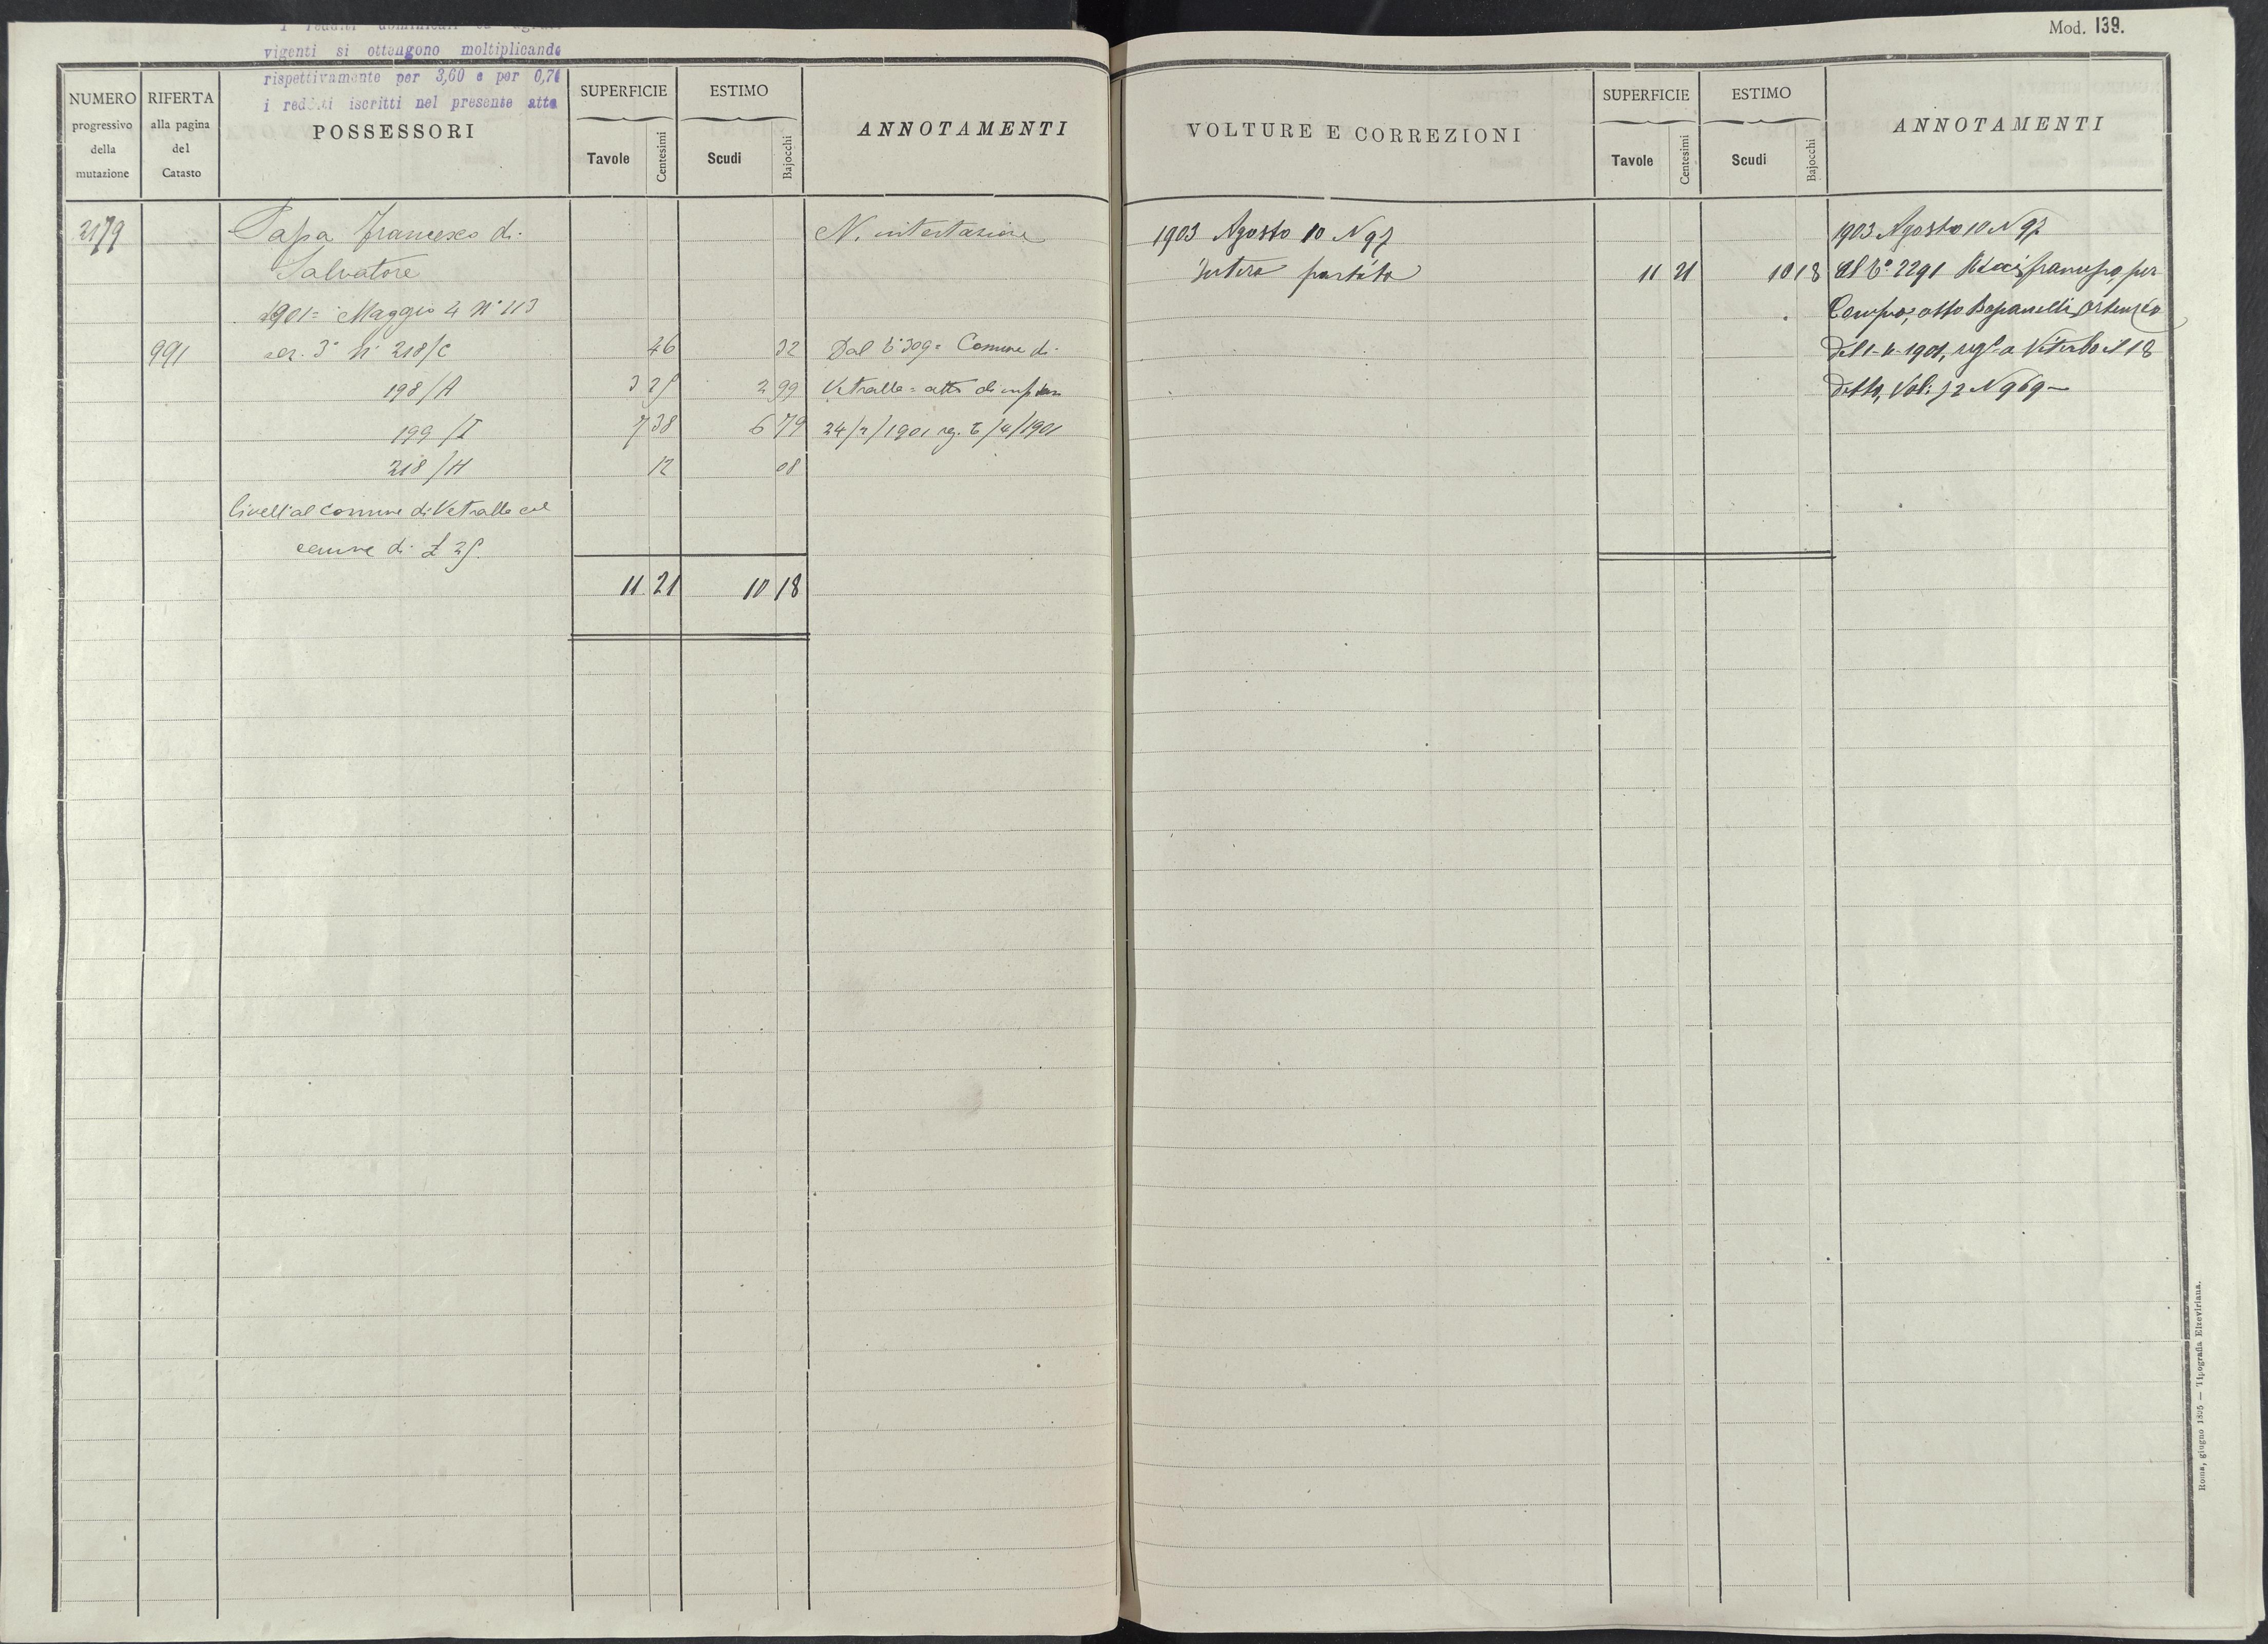 Mod. 139.
vigenti si ottengono moltiplicando
rispettivamente per 3,60 e per 0,70
i redditi iscritti nel presente atto
NUMERO progressivo della mutazione
RIFERTA alla pagina del Catasto
POSSESSORI
SUPERFICIE
Tavole
Centesimi
ESTIMO
Scudi
Bajocchi
ANNOTAMENTI
2179 Papa Francesco di N. intestazione
Salvatore
1901= Maggio 4 N° 113
991 sez. 3ª N° 218/C 46 32 Dal N° 309= Comune di
198/A 3 25 2 99 Vetralla= atto di
199/I 7 38 6 79 24/2/1901 reg. 6/4/1901
218/H 12 08
livell. al Comune di Vetralla col
canone di £ 25.
11 21 10 18
VOLTURE E CORREZIONI
SUPERFICIE
Tavole
Centesimi
ESTIMO
Scudi
Bajocchi
ANNOTAMENTI
1903 Agosto 10 N 97 1903 Agosto 10 N 97
Intera partita 11 21 10 18 Al N° 2291 per
Compra, atto
del 1-11-1901, regº a Viterbo il 18
detto, Vol: 72 N 969—
Roma, giugno 1895 — Tipografia Elzeviriana.